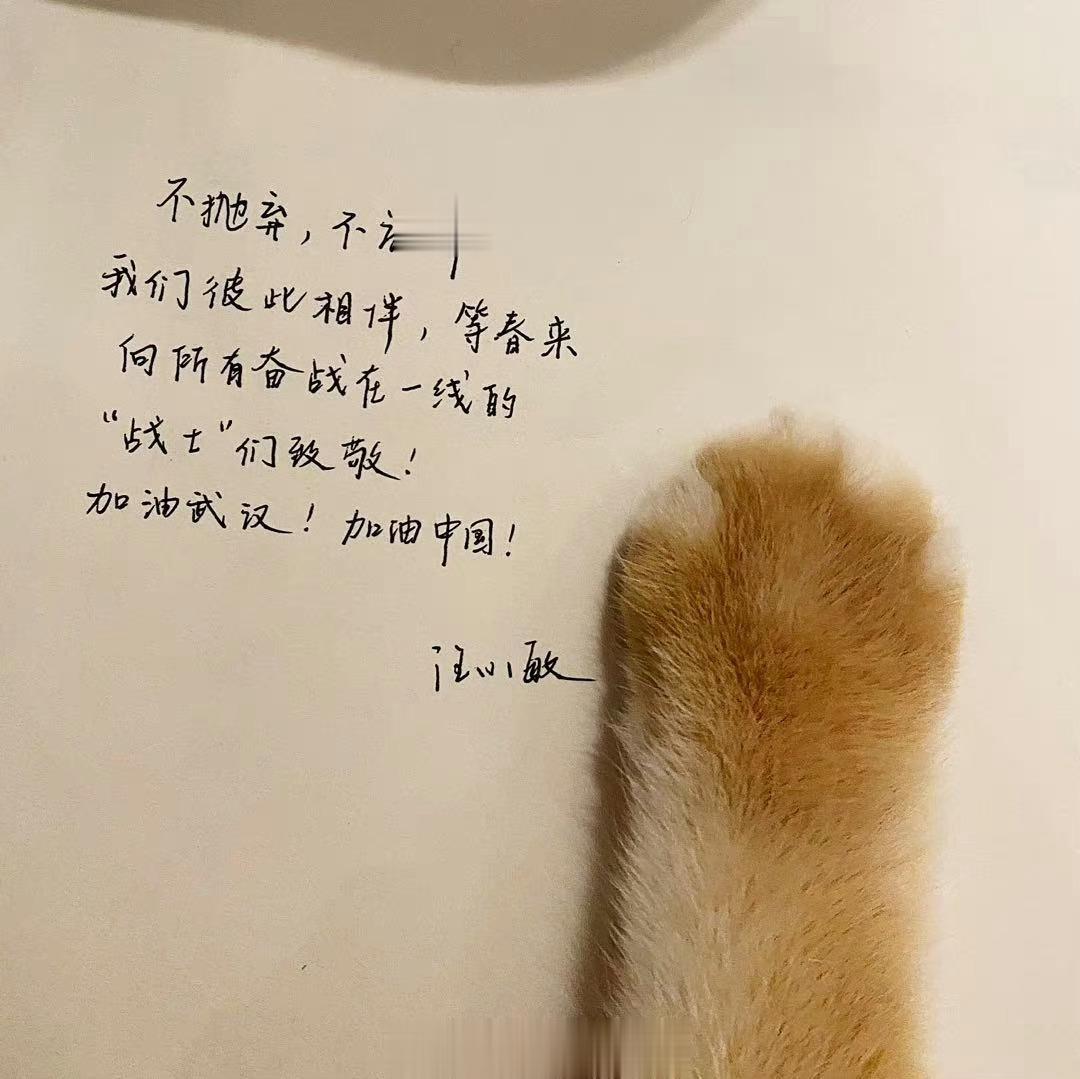 不抛弃，不
我们彼此相伴，等春来
向所有奋战在一线的
“战士”们致敬！
加油武汉！加油中国！
汪小敏